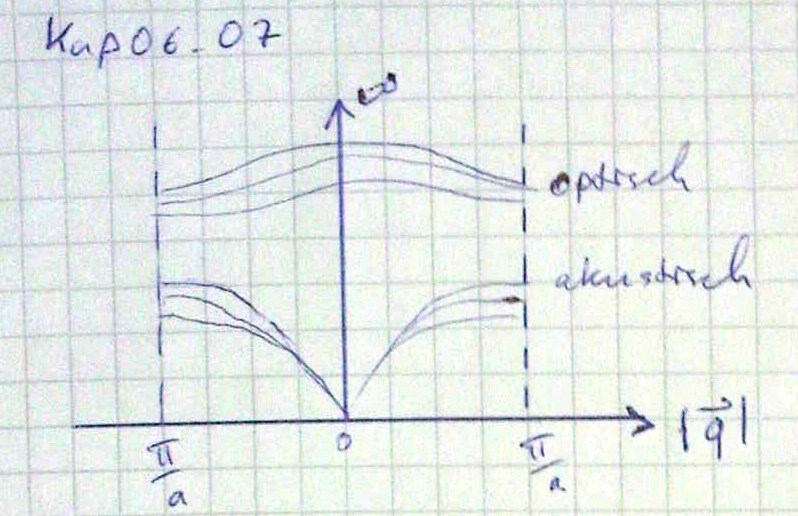 Kap06_07
ω
optisch
akustisch
|q⃗|
π/a
0
π/a